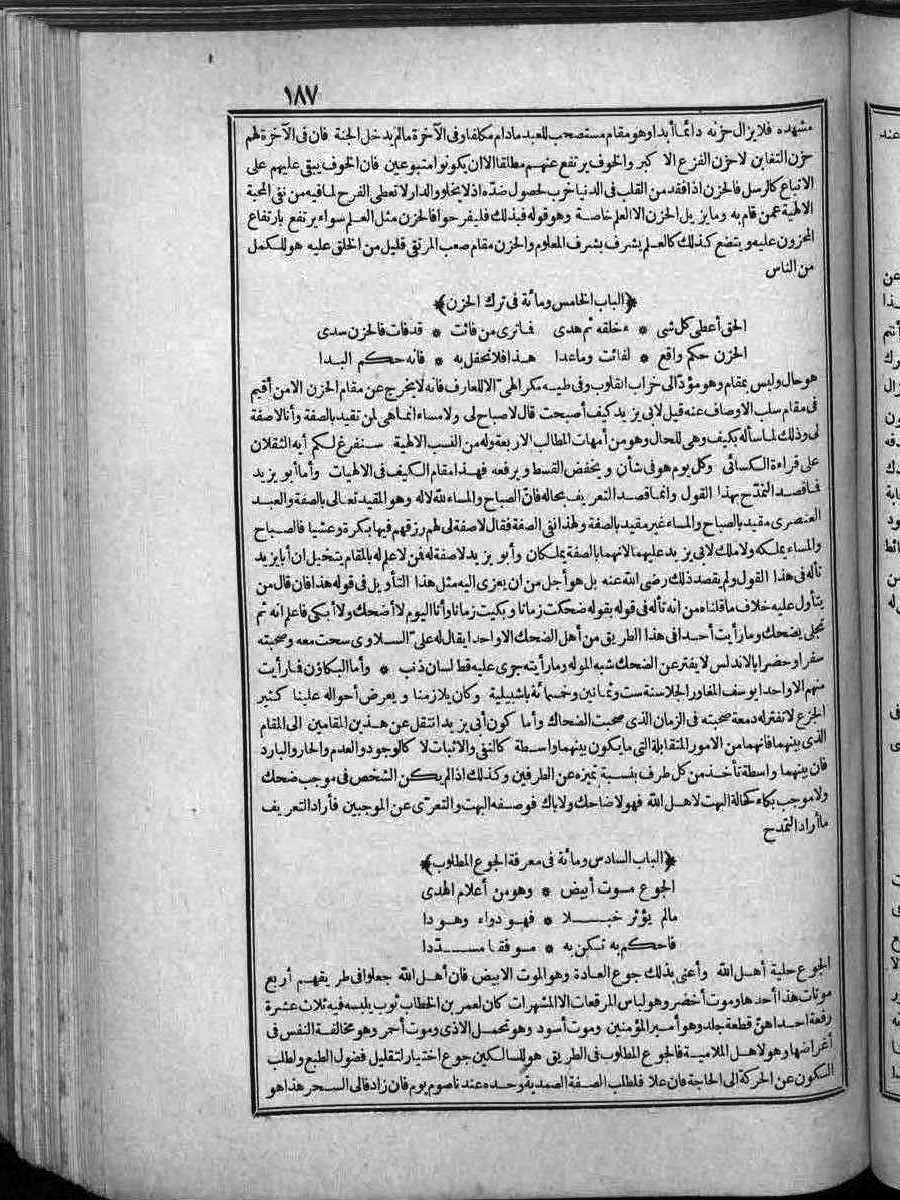 ١٨٧
مشهده فلايزال حزنه دائما أبدا وهو مقام مستصحب للعبد مادام مكلفا وفى الآخرة مالم يدخل الجنة فان فى الآخرة لهم
حزن التغابن لا حزن الفزع الا كبر والخوف يرتفع عنهم مطلقا الا ان يكونوا متبوعين فان الخوف يبقى عليهم على
الاتباع كالرسل فالحزن اذا فقد من القلب فى الدنيا خرب لحصول ضده اذ لا يخلو والدار لا تعطى الفرح لما فيه من نفى المحبة
الالهية عمن قام به وما يزيل الحزن الا العلم خاصة وهو قوله فبذلك فليفرحوا فالحزن مثل العلم سواء يرتفع بارتفاع
المحزون عليه ويتضع كذلك كالعلم يشرف بشرف المعلوم والحزن مقام صعب المرتقى قليل من الخلق عليه هو للكمل
من الناس
﴿الباب الخامس ومائة فى ترك الحزن﴾
الحق أعطى كل شى * ء خلقه ثم هدى فما ترى من فائت * قد فات فالحزن سدى
الحزن حكم واقع * لفائت وما عدا هذا فلا تحفل به * فانه حكم البدا
هو حال وليس بمقام وهو مؤدّ الى خراب القلوب وفى طيه مكر الهىّ الا للعارف فانه لا يخرج عن مقام الحزن الا من أقيم
فى مقام سلب الاوصاف عنه قيل لابى يزيد كيف أصبحت قال لا صباح لى ولا مساء انما هى لمن تقيد بالصفة وأنا لا صفة
لى وذلك لما سأله بكيف وهى للحال وهو من أمهات المطالب الاربعة وله من النسب الالهية سنفرغ لكم أيه الثقلان
على قراءة الكسائى وكل يوم هو فى شأن و يخفض القسط و يرفعه فهذا مقام الكيف فى الالهيات وأما أبو يزيد
فما قصد التمدّح بهذا القول وانما قصد التعريف بحاله فانّ الصباح والمساء لله لا له وهو المقيد تعالى بالصفة والعبد
العنصرى مقيد بالصباح والمساء غير مقيد بالصفة ولهذا نفى الصفة فقال لا صفة لى لهم رزقهم فيها بكرة وعشيا فالصباح
والمساء يملكه ولا ملك لابى يزيد عليهما لانهما بالصفة يملكان وأبو يزيد لا صفة له فن لا علم له بالمقام يتخيل ان أبا يزيد
تأله فى هذا القول ولم يقصد ذلك رضى الله عنه بل هو أجل من ان يعزى اليه مثل هذا التأويل فى قوله هذا فان قال من
يتأول عليه خلاف ما قلناه من انه تأله فى قوله بقوله ضحكت زمانا و بكيت زمانا وأنا اليوم لا أضحك ولا أبكى فاعلم انه ثم
تجلى يضحك وما رأيت أحدا فى هذا الطريق من أهل الضحك الا واحدا يقال له علىّ السلاوى سحت معه وصحبته
سفرا وحضرا بالاندلس لا يفتر عن الضحك شبه الموله وما رأيته جرى عليه قط لسان ذنب * وأما البكاؤن فما رأيت
منهم الا واحدا يوسف المغاور الجلاء سنة ست وثمانين وخمسمائة باشبيلية وكان يلازمنا و يعرض أحواله علينا كثير
الجزع لا تفتر له دمعة صحبته فى الزمان الذى صحبت الضحاك وأما كون أبى يزيد انتقل عن هذين المقامين الى المقام
الذى بينهما فانهما من الامور المتقابلة التى ما يكون بينهما واسطة كالنفى والاثبات لا كالوجود والعدم والحار والبارد
فان بينهما واسطة تأخذ من كل طرف بنسبة تميزه عن الطرفين وكذلك اذا لم يكن الشخص فى موجب ضحك
ولا موجب بكاء كحالة البهت لاهل الله فهو لا ضاحك ولا باك فوصفه البهت والتعرّى عن الموجبين فأراد التعريف
ما أراد التمدح
﴿الباب السادس ومائة فى معرفة الجوع المطلوب﴾
الجوع موت أبيض * وهو من أعلام الهدى
مالم يؤثر خبلا * فهو دواء وهو دا
فاحكم به تكن به * موفقا مسدّدا
الجوع حلية أهل الله وأعنى بذلك جوع العادة وهو الموت الابيض فان أهل الله جعلوا فى طريقهم أربع
موتات هذا أحدها وموت أخضر وهو لباس المرقعات الا المشهرات كان لعمر بن الخطاب ثوب يلبسه فيه ثلاث عشرة
رقعة احداهنّ قطعة جلد وهو أمير المؤمنين وموت أسود وهو تحمل الاذى وموت أحمر وهو مخالفة النفس فى
أغراضها وهو لاهل الملامية فالجوع المطلوب فى الطريق هو للسالكين جوع اختيار لتقليل فضول الطبع ولطلب
السكون عن الحركة الى الحاجة فان علا فلطلب الصفة الصمدية وحده عندنا صوم يوم فان زاد فالى السحر هذا هو